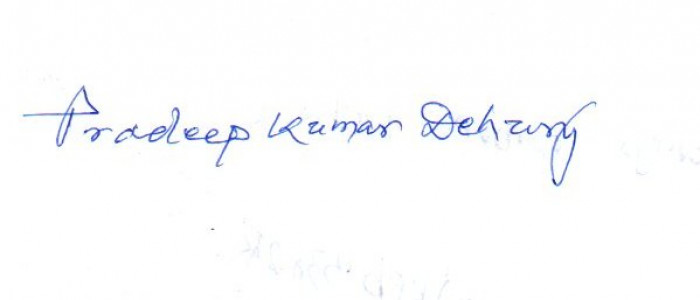 Pradeep Kumar Dehury